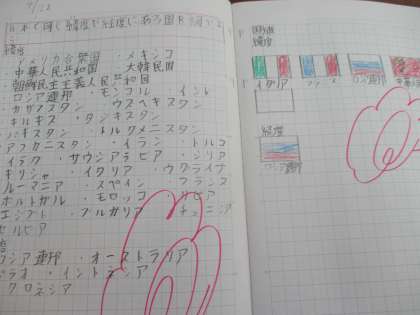 7/22
日本と同じ緯度と経度にある国
緯度
・アメリカ合衆国 ・メキシコ
・中華人民共和国 大韓民国
・朝鮮民主主義人民共和国
・ロシア連邦 ・モンゴル ・インド
・カザフスタン ・ウズベキスタン
・キルギス ・タジキスタン
パキスタン ・トルクメニスタン
アフガニスタン ・イラン ・トルコ
イラク ・サウジアラビア ・シリア
ギリシャ ・イタリア ・ウクライナ
ルーマニア ・スペイン ・フランス
ポルトガル ・モロッコ ・リビア
エジプト ・ブルガリア チュニジア
セルビア
ロシア連邦 ・オーストラリア
パラオ ・インドネシア
クロネシア
国旗
緯度
イタリア
経度